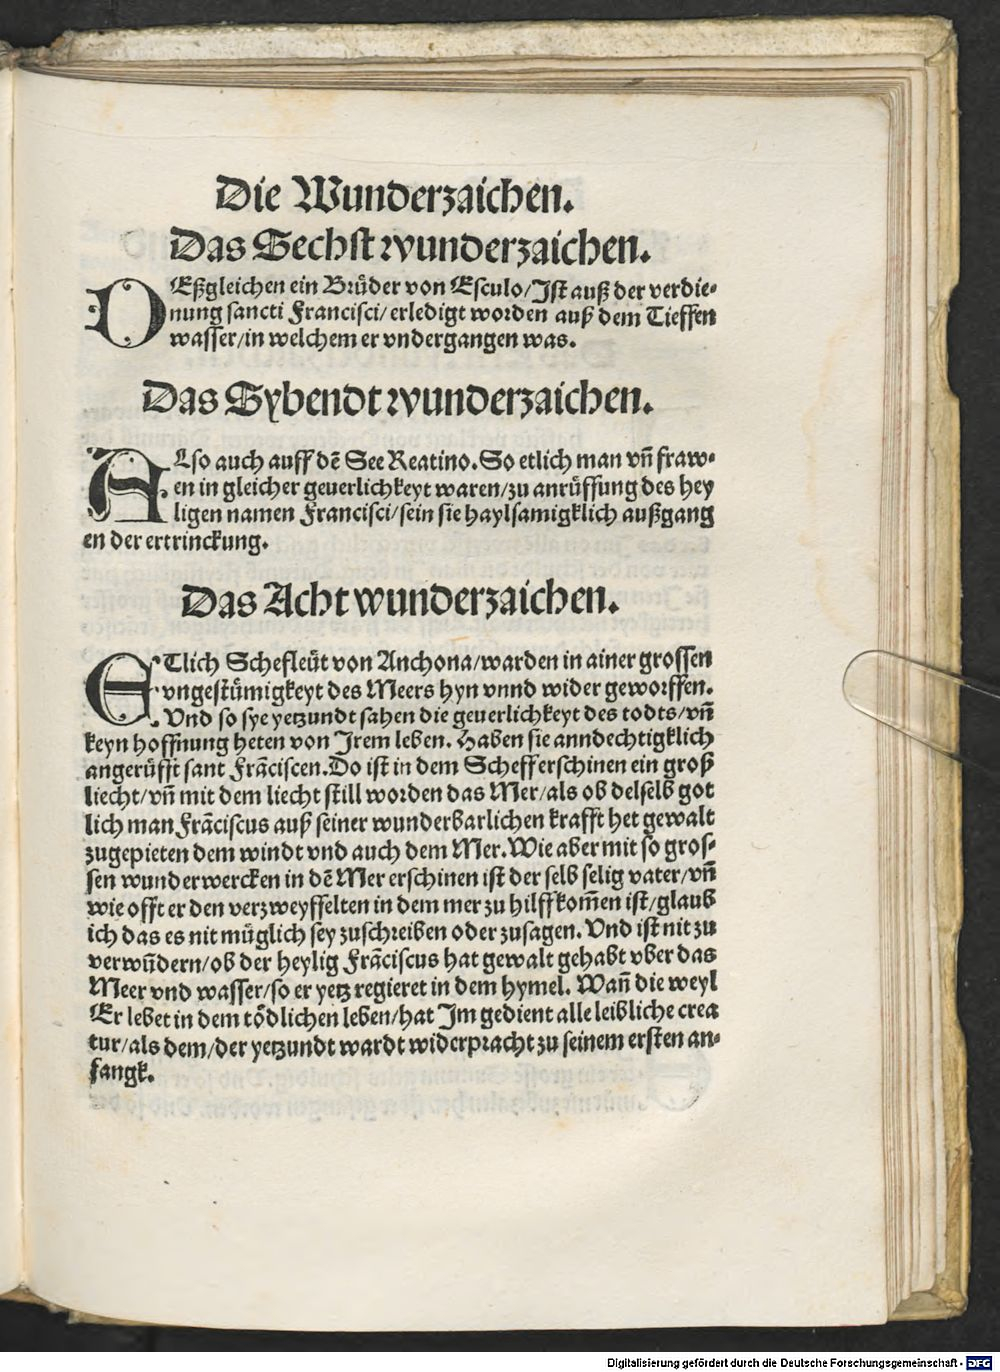 Die Wunderzaichen.
Das Sechst wunderzaichen.
DEßgleichen ein Brůder von Esculo/Jst auß der verdie-
nung sancti Francisci/erledigt worden auß dem Tieffen
wasser/in welchem er vndergangen was.
Das Sybendt wunderzaichen.
ALso auch auff dē See Reatino. So etlich man vn̄ fraw-
en in gleicher geuerlichkeyt waren/zu anrůffung des hey
ligen namen Francisci/sein sie haylsamigklich außgang
en der ertrinckung.
Das Acht wunderzaichen.
ETlich Schefleüt von Anchona/warden in ainer grossen
vngestümigkeyt des Meers hyn vnnd wider geworffen.
Vnd so sye yetzundt sahen die geuerlichkeyt des todts/vn̄
keyn hoffnung heten von Jrem leben. Haben sie anndechtigklich
angerůfft sant Frāciscen. Do ist in dem Schefferschinen ein groß
liecht/vn̄ mit dem liecht still worden das Mer/als ob delselb got
lich man Frāciscus auß seiner wunderbarlichen krafft het gewalt
zugepieten dem windt vnd auch dem Mer. Wie aber mit so gros-
sen wunderwercken in dē Mer erschinen ist der selb selig vater/vn̄
wie offt er den verzweyffelten in dem mer zu hilff kom̄en ist/glaub
ich das es nit müglich sey zuschreiben oder zusagen. Vnd ist nit zu
verwūdern/ob der heylig Frāciscus hat gewalt gehabt vber das
Meer vnd wasser/so er yetz regieret in dem hymel. Wan̄ die weyl
Er lebet in dem tödlichen leben/hat Jm gedient alle leibliche crea
tur/als dem/der yetzundt wardt widerpracht zu seinem ersten an-
fangk.
Digitalisierung gefördert durch die Deutsche Forschungsgemeinschaft - DFG